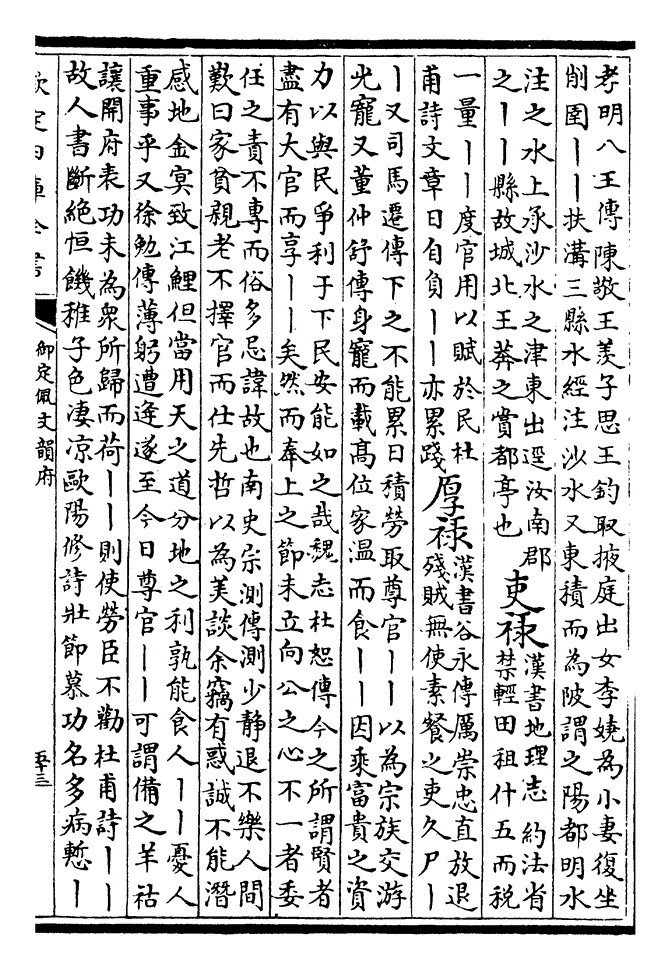 考明八王傳陳敬王羡子思王鈞取掖庭出女李嬈為小妻復坐
削圉丨丨扶溝三縣水經注沙水又東積而為陂謂之陽都明水
注之水上承沙水之津東出逕汝南郡
之丨丨縣故城北王莽之賞都亭也
吏禄
漢書地理志約法省
禁輕田租什五而税
一量丨丨度官用以賦於民杜
甫詩文章日自負丨丨亦累踐
厚禄
漢書谷永傳厲崇忠直放退
殘賊無使素餐之吏久尸丨
丨又司馬遷傳下之不能累日積勞取尊官丨丨以為宗族交游
光寵又董仲舒傳身寵而載髙位家温而食丨丨因乘富貴之資
力以與民爭利于下民安能如之哉魏志杜恕傳今之所謂賢者
盡有大官而享丨丨矣然而奉上之節未立向公之心不一者委
任之責不專而俗多忌諱故也南史宗測傳測少静退不樂人間
歎曰家貧親老不擇官而仕先哲以為美談余竊有惑誠不能潛
感地金冥致江鯉但當用天之道分地之利孰能食人丨丨憂人
重事乎又徐勉傳薄躬遭逢遂至今日尊官丨丨可謂備之羊祜
讓開府表功未為衆所歸而荷丨丨則使勞臣不勸杜甫詩丨丨
故人書斷絶恒饑稚子色凄凉歐陽修詩壯節慕功名多病慙丨
欽定四庫全書
御定佩文韻府
五十三